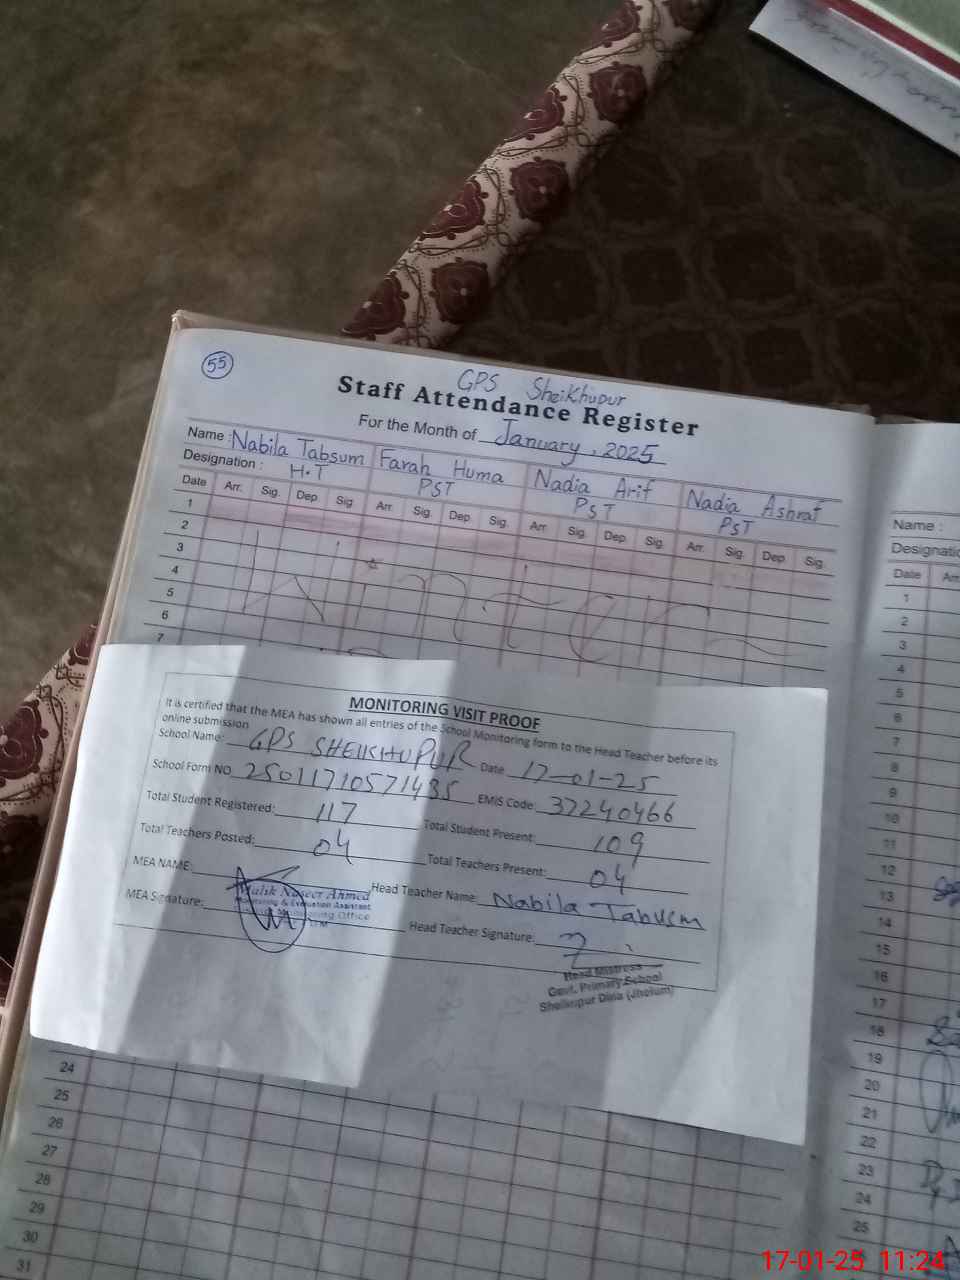 55
GPS Sheikhupur
Staff Attendance Register
For the Month of January, 2025
Name : Nabila Tabsum Farah Huma Nadia Arif Nadia Ashraf
Designation : H.T PST PST PST
Date Arr. Sig. Dep Sig. Arr. Sig. Dep. Sig. Arr. Sig. Dep. Sig. Arr. Sig. Dep. Sig.
1
2
3
4
5
6
7
Winter
MONITORING VISIT PROOF
It is certified that the MEA has shown all entries of the School Monitoring form to the Head Teacher before its
online submission
School Name: GPS SHEIKHUPUR Date 17-01-25
School Form NO 25011710571435 EMIS Code: 37240466
Total Student Registered: 117 Total Student Present: 109
Total Teachers Posted: 04 Total Teachers Present: 04
MEA NAME: Malik Naseer Ahmed Head Teacher Name: Nabila Tabusm
Monitoring & Evaluation Assistant
Monitoring Office
MEA Signature: Head Teacher Signature:
Head Mistress
Govt. Primary School
Sheikhpur Dina (Jhelum)
24
25
26
27
28
29
30
31
Name :
Designatio
Date Arr
1
2
3
4
5
6
7
8
9
10
11
12
13
14
15
16
17
18
19
20
21
22
23
24
25
17-01-25 11:24